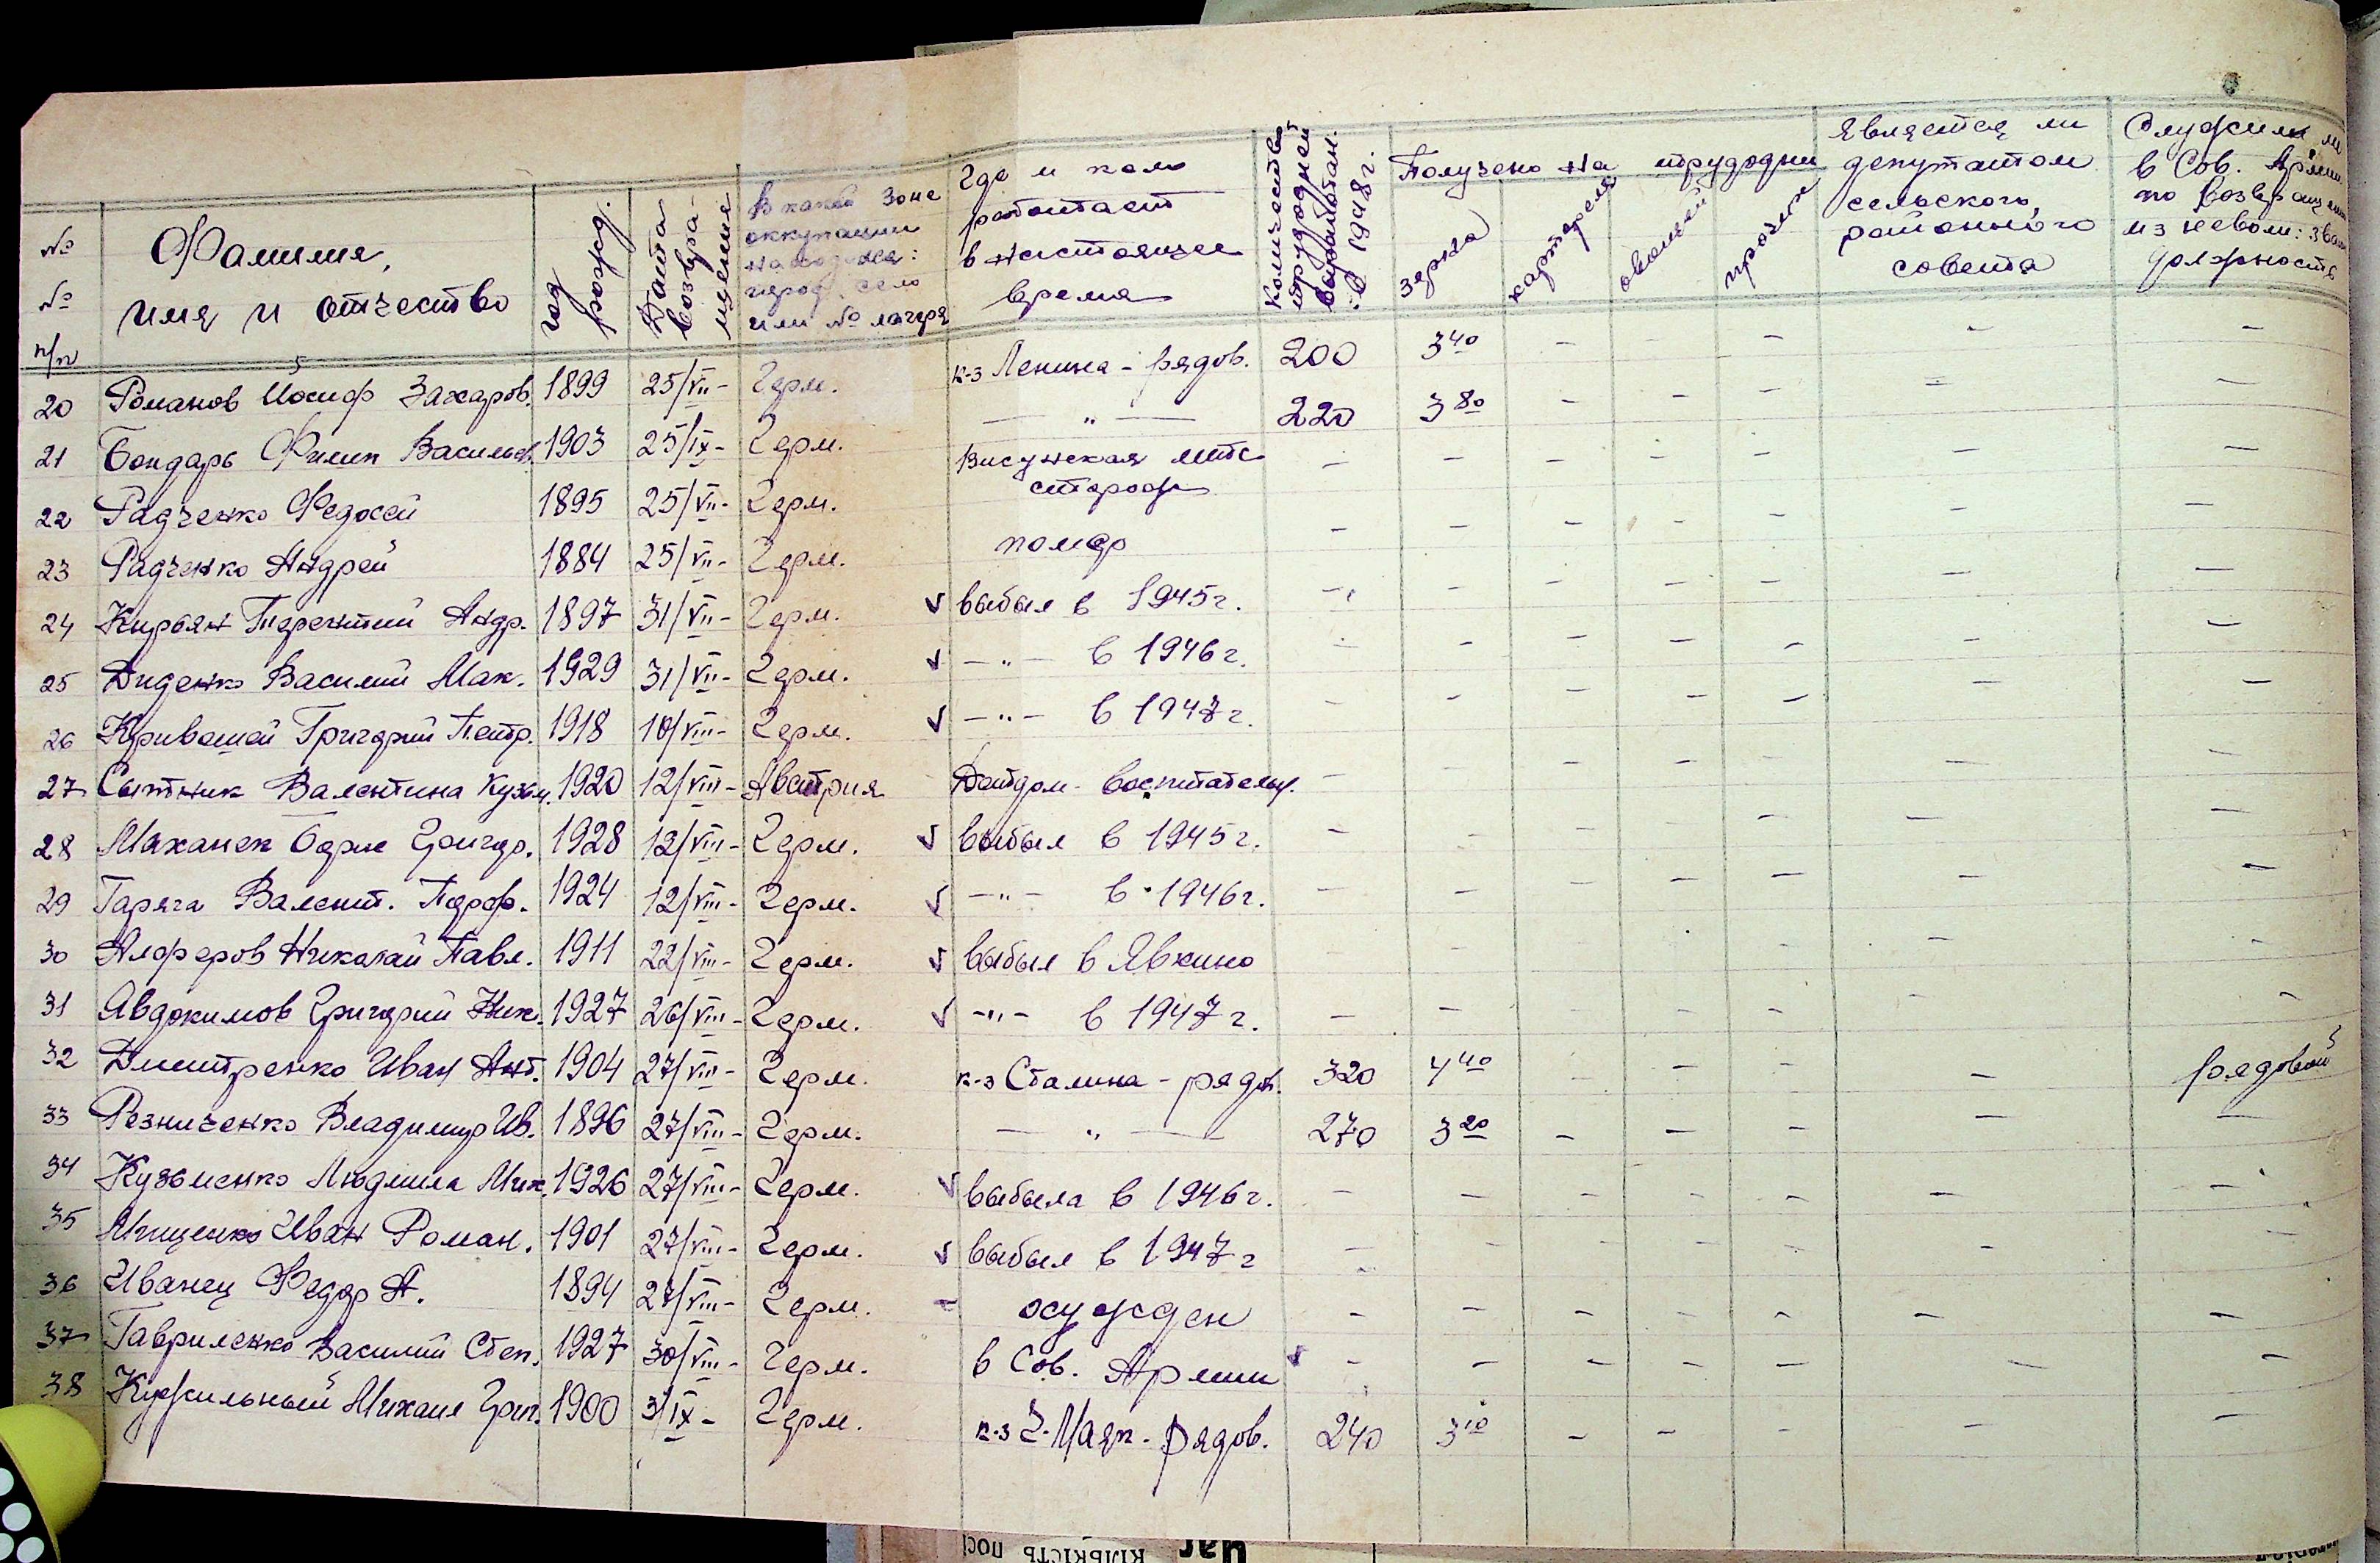 № № п/п
Фамилия, имя и отчество
год рожд.
Дата возвращения
В какой зоне оккупации находился: город, село или № лагеря
Где и кем работает в настоящее время
Количество трудодней выработан. в 1948 г.
Получено на трудодни
зерна
картофеля
овощей
прочих
Является ли депутатом сельского, районного совета
Служил ли в Сов. Армии по возвращении из неволи: звание должность
20 Романов Иосиф Захаров. 1899 25/VII- Герм. к-з Ленина - рядов. 200 3 40 - - - - -
21 Бондарь Филип Васильев. 1903 25/IX- Герм. — " — 220 3 80 - - - - -
22 Радченко Федосей 1895 25/VII- Герм. Висунская мтс сторож - - - - - - -
23 Радченко Андрей 1884 25/VII- Герм. помер - - - - - - -
24 Кирьян Терентий Андр. 1897 31/VII- Герм. v выбыл в 1945 г. - - - - - - -
25 Диденко Василий Мак. 1929 31/VII- Герм. v - " - в 1946 г. - - - - - - -
26 Кривошей Григорий Петр. 1918 10/VIII- Герм. v - " - в 1947 г. - - - - - - -
27 Сытник Валентина Кузьм. 1920 12/VIII- Австрия Детдом - воспитательн. - - - - - - -
28 Маханек Борис Григор. 1928 12/VIII- Герм. v выбыл в 1945 г. - - - - - - -
29 Гаряга Валент. Порф. 1924 12/VIII- Герм. v - " - в 1946 г. - - - - - - -
30 Алферов Николай Павл. 1911 22/VIII- Герм. v выбыл в Явкино - - - - - - -
31 Явдокимов Григорий Ник. 1927 26/VIII- Герм. v - " - в 1947 г. - - - - - - -
32 Дмитренко Иван Ант. 1904 27/VIII- Герм. к-з Сталина - рядов. 320 4 40 - - - - рядовой
33 Резниченко Владимир Ив. 1896 27/VIII- Герм. — " — 270 3 20 - - - - -
34 Кузьменко Людмила Мих. 1926 27/VIII- Герм. v выбыла в 1946 г. - - - - - - -
35 Мищенко Иван Роман. 1901 27/VIII- Герм. v выбыл в 1947 г - - - - - - -
36 Иванец Федор А. 1894 27/VIII- Герм. - осужден - - - - - - -
37 Гавриленко Василий Степ. 1927 30/VIII- Герм. в Сов. Армии v - - - - - - -
38 Кужильный Михаил Григ. 1900 3/IX- Герм. к-з рядов. 240 3 10 - - - - -
кількість пос